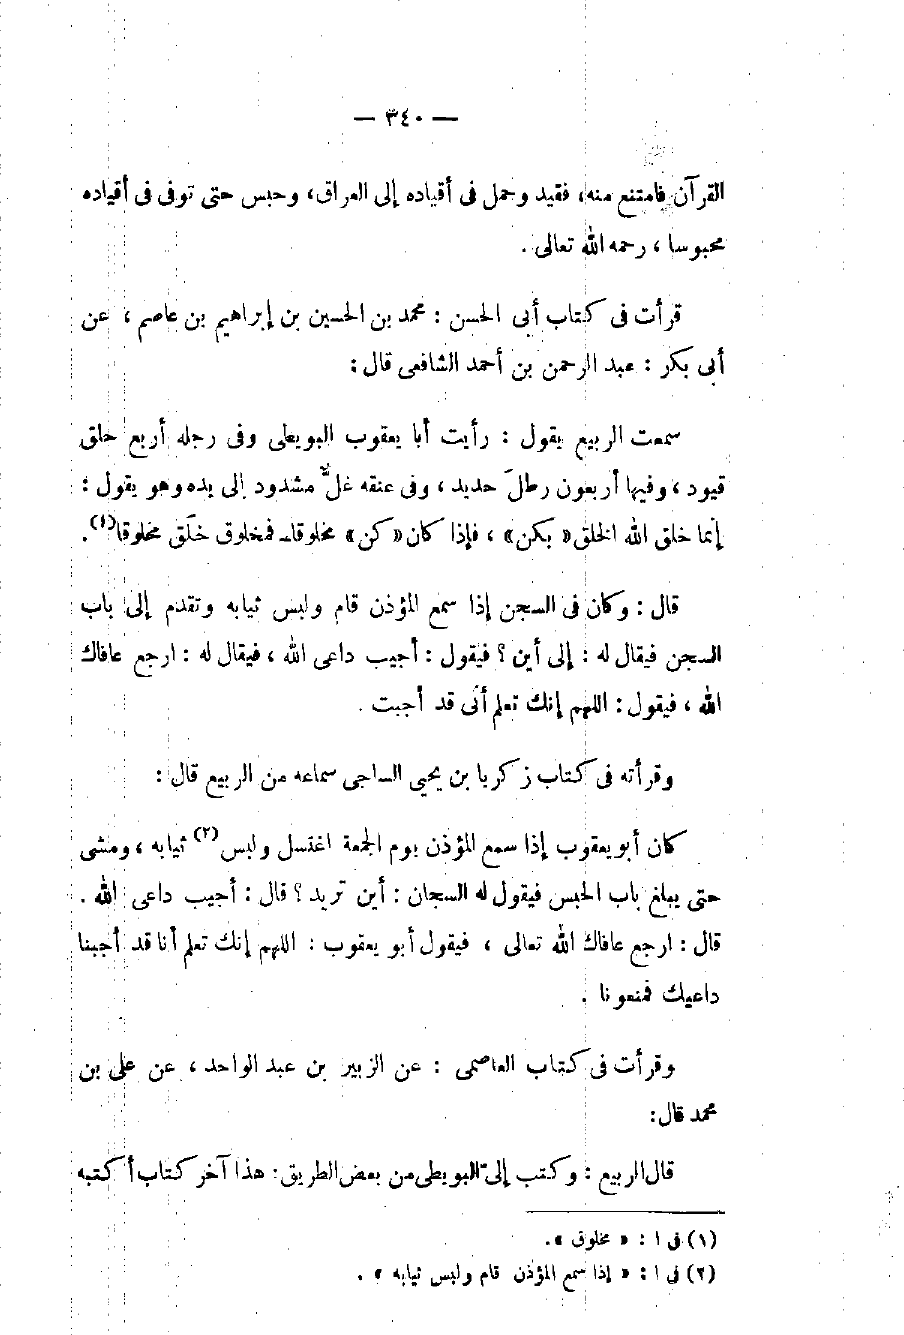 — ٣٤٠ —
القرآن فامتنع منه، فقيد وحمل فى أقياده إلى العراق، وحبس حتى توفى فى أقياده
محبوسا ، رحمه الله تعالى .
قرأت فى كتاب أبى الحسن : محمد بن الحسين بن إبراهيم بن عاصم ، عن
أبى بكر : عبد الرحمن بن أحمد الشافعى قال :
سمعت الربيع يقول : رأيت أبا يعقوب البويطى وفى رجله أربع حلق
قيود ، وفيها أربعون رطلَ حديد ، وفى عنقه غلٌّ مشدود إلى يده وهو يقول :
إنما خلق الله الخلق « بكن » ، فإذا كان « كن » مخلوقا فمخلوق خلَق مخلوقا(١) .
قال : وكان فى السجن إذا سمع المؤذن قام ولبس ثيابه وتقدم إلى باب
السجن فيقال له : إلى أين ؟ فيقول : أجيب داعى الله ، فيقال له : ارجع عافاك
الله ، فيقول : اللهم إنك تعلم أنى قد أجبت .
وقرأته فى كتاب زكريا بن يحيى الساجى سماعه من الربيع قال :
كان أبو يعقوب إذا سمع المؤذن يوم الجمعة اغتسل ولبس(٢) ثيابه ، ومشى
حتى يبلغ باب الحبس فيقول له السجان : أين تريد ؟ قال : أجيب داعى الله .
قال : ارجع عافاك الله تعالى ، فيقول أبو يعقوب : اللهم إنك تعلم أنا قد أجبنا
داعيك فمنعونا .
وقرأت فى كتاب العاصمى : عن الزبير بن عبد الواحد ، عن على بن
محمد قال :
قال الربيع : وكتب إلىّ البويطى من بعض الطريق : هذا آخر كتاب أكتبه
(١) فى ا : « مخلوق » .
(٢) فى ا : « إذا سمع المؤذن قام ولبس ثيابه » .